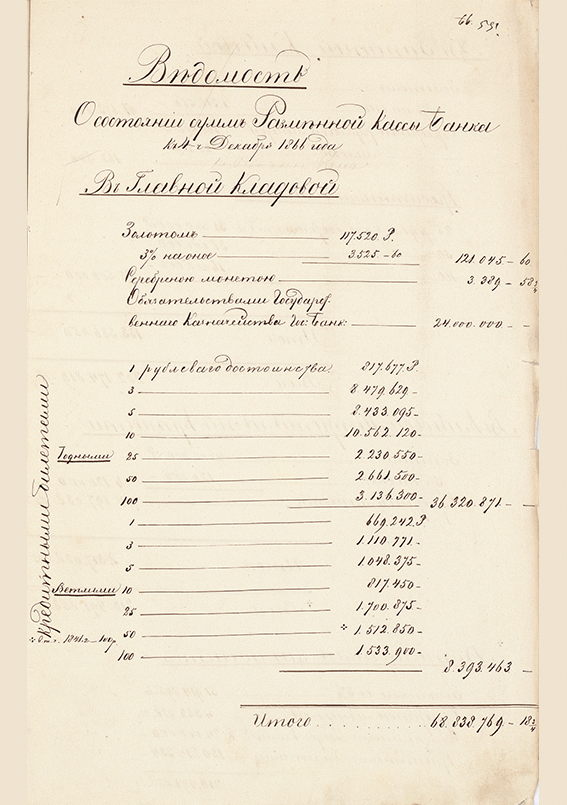 66. 59.
Вѣдомость
О состоянiи суммъ Размѣнной Кассы Банка
къ 4 ч Декабря 1866 года
Въ Главной Кладовой
Золотомъ 117.520 Р.
3% на оное 3.525 – 60 121.045 – 60
Серебряною монетою 3.389 – 58¾
Обязательствами Государс-
твеннаго Казначейства Гос: Банк: 24.000.000 – –
Кредитными билетами
1 рублеваго достоинства 817.677 Р.
3 8.479.629 –
5 8.433.095 –
10 10.562.120 –
Годными 25 2.230.550 –
50 2.661.500 –
100 3.136.300 – 36.320.871 –
1 669.242 Р
3 1.110.771 –
5 1.048.375 –
Ветхими 10 817.450 –
25 1.700.875 –
1841 г – 100 р 50 1.512.850 –
100 1.533.900 –
8.393.463 –
Итого . . . . . . . . . 68.838.769 – 18¾